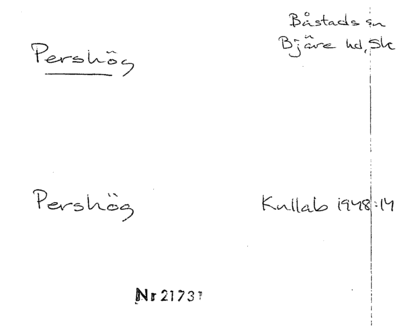 Båstads sn
Pershög
Bjäre hd, Sk
Pershög
Kullab 1948:14
Nr 2173